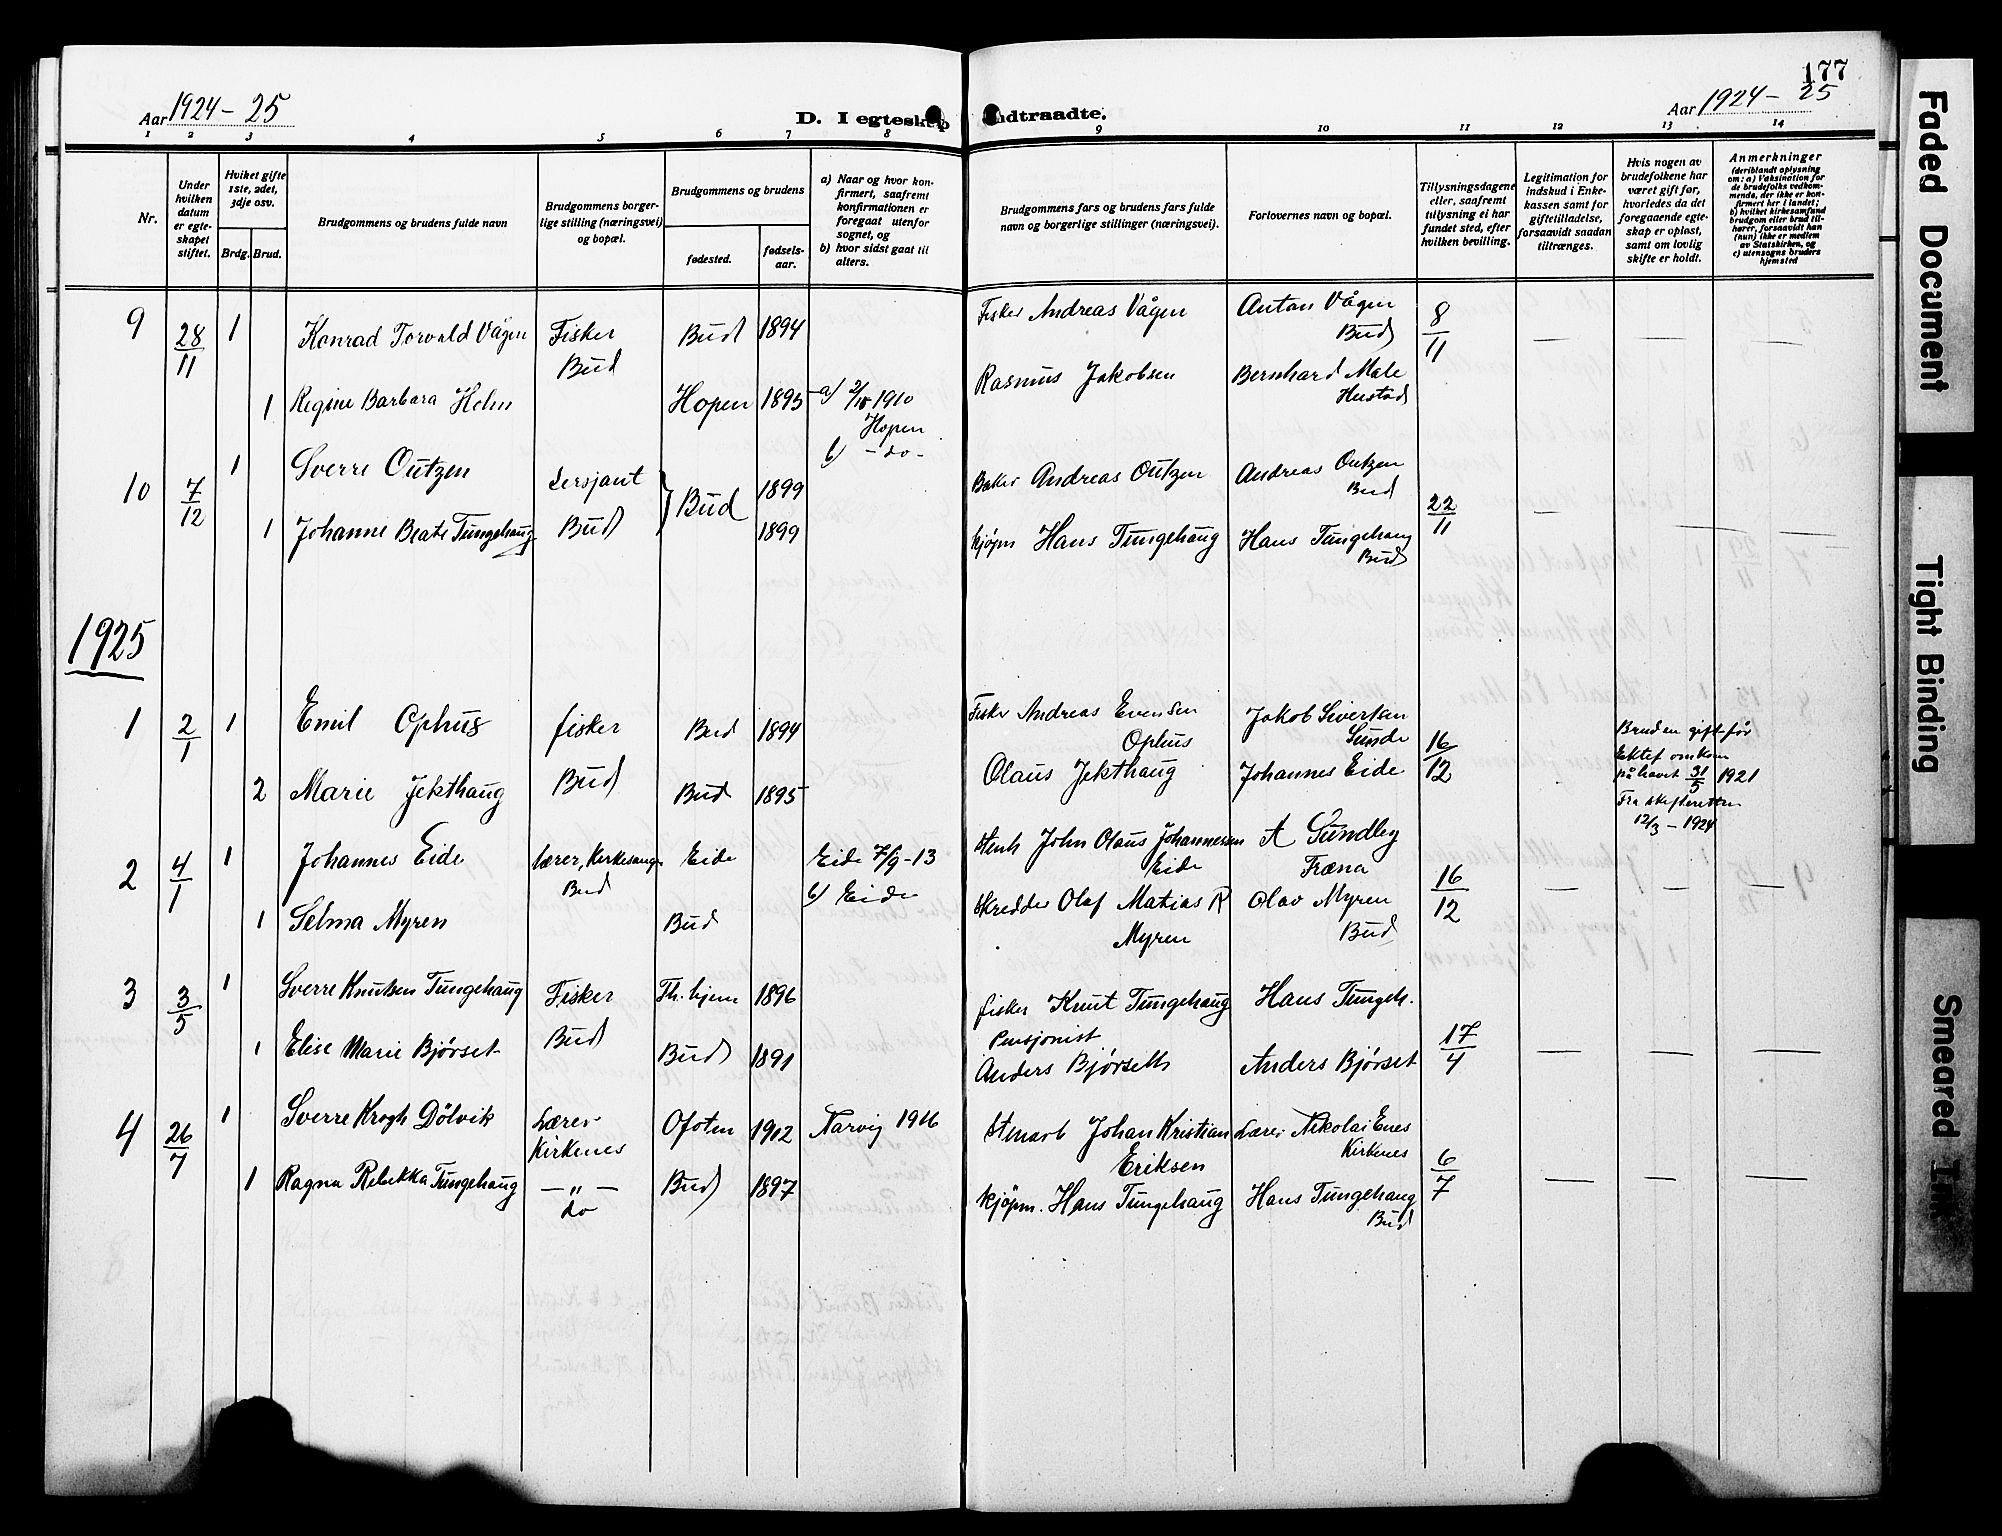 177
Aar 1924 – 25
D. I egteskap indtraadte.
Aar 1924 – 25
1 2 3 4 5 6 7 8 9 10 11 12 13 14
Nr.
Under hvilken datum er egteskapet stiftet.
Hvilket gifte 1ste, 2det, 3dje osv.
Brdg. Brud.
Brudgommens og brudens fulde navn
Brudgommens borgerlige stilling (næringsvei) og bopæl.
Brudgommens og brudens
fødested.
fødselsaar.
a) Naar og hvor konfirmert, saafremt konfirmationen er foregaat utenfor sognet, og
b) hvor sidst gaat til alters.
Brudgommens fars og brudens fars fulde navn og borgerlige stillinger (næringsvei).
Forlovernes navn og bopæl.
Tillysningsdagene eller, saafremt tillysning ei har fundet sted, efter hvilken bevilling.
Legitimation for indskud i Enkekassen samt for giftetilladelse, forsaavidt saadan tiltrænges.
Hvis nogen av brudefolkene har været gift før, hvorledes da det foregaaende egteskap er opløst, samt om lovlig skifte er holdt.
Anmerkninger (deriblandt oplysning om: a) Vaksination for de brudefolks vedkommende, der ikke er konfirmert her i landet; b) hvilket kirkesamfund brudgom eller brud tilhører, forsaavidt han (hun) ikke er medlem av Statskirken, og c) utensogns bruders hjemsted
9 28/11 1 Konrad Torvald Vågen Fisker Bud Bud 1894 Fisker Andreas Vågen Anton Vågen Bud 8/11 — — —
1 Regine Barbara Holm Hopen 1895 a) 2/10 1910 Hopen b) – do – Rasmus Jakobsen Bernhard Male Hustad
10 7/12 1 Sverre Outzen Sersjant Bud } Bud 1899 Baker Andreas Outzen Andreas Outzen Bud 22/11 — — —
1 Johanne Beate Tungehaug 1899 kjøpm Hans Tungehaug Hans Tungehaug Bud
1925
1 2/1 1 Emil Ophus fisker Bud Bud 1894 Fisker Andreas Evensen Ophus Jakob Sivertsen Sunde 16/12 Bruden gift før Ektef omkom på havet 31/5 1921 Fra skifteretten 12/3 – 1924
2 Marie Jekthaug Bud 1895 Olaus Jekthaug Johannes Eide
2 4/1 1 Johannes Eide lærer, Kirkesanger Bud Eide Eide 7/9 – 13 b) Eide John Olaus Johannessen Eide A Sundby Fræna 16/12 — — —
1 Selma Myren Bud skredder Olaf Matias R Myren Olav Myren Bud
3 3/5 1 Sverre Knutsen Tungehaug Fisker Bud Th.hjem 1896 fisker Knut Tungehaug Hans Tungeh. 17/4 — — —
1 Elise Marie Bjørset Bud 1891 Pensjonist Anders Bjørseth Anders Bjørset
4 26/7 1 Sverre Krogh Dölvik Lærer Kirkenes Ofoten 1902 Narvig 1916 Johan Kristian Eriksen Lærer Nikolai Enes Kirkenes 6/7 — — —
1 Ragna Rebekka Tungehaug — „ — do Bud 1897 kjøpm. Hans Tungehaug Hans Tungehaug Bud
Faded Document
Tight Binding
Smeared Ink